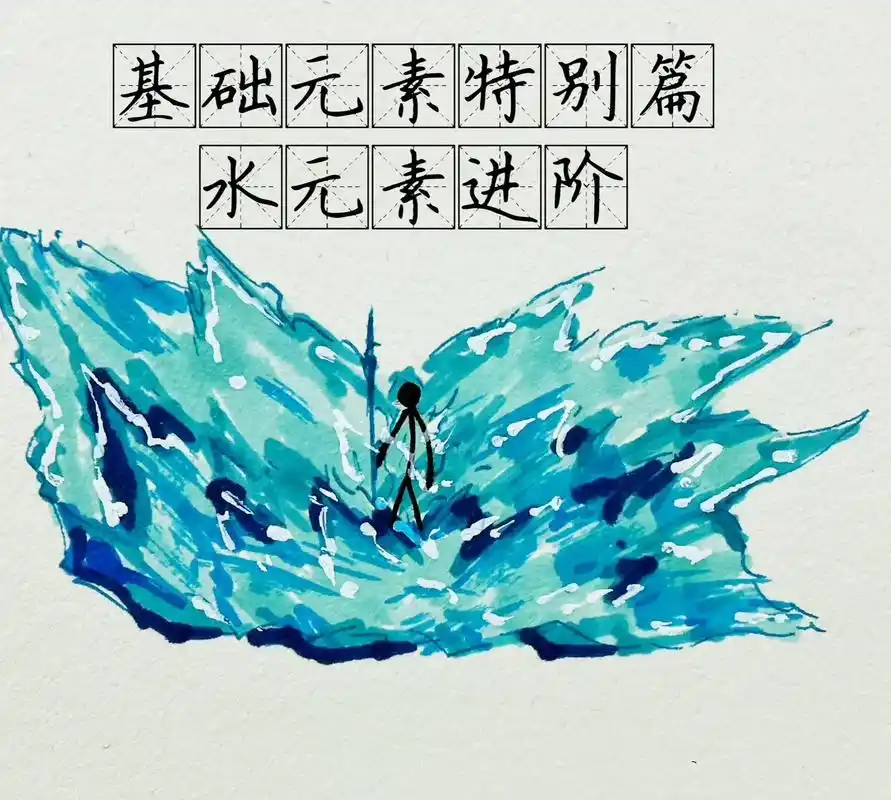 基础元素特别篇
水元素进阶